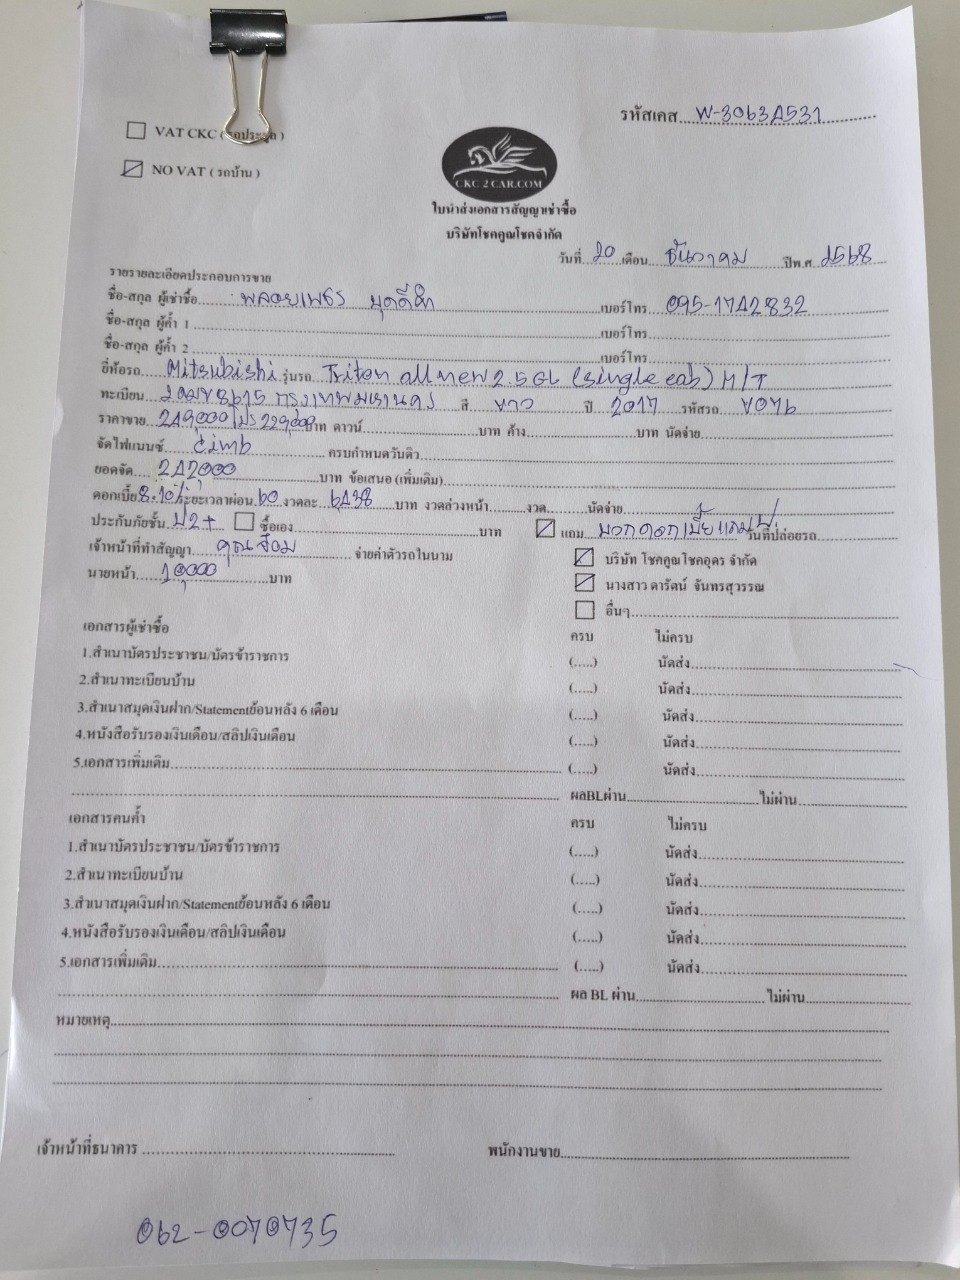 รหัสเคส....W-3063A531
VAT CKC (รถประมูล)
NO VAT ( รถบ้าน )
CKC 2 CAR.COM
ใบนำส่งเอกสารสัญญาเช่าซื้อ
บริษัทโชคคูณโชคจำกัด
วันที่ 20 เดือน ธันวาคม ปีพ.ศ. 2568
รายรายละเอียดประกอบการขาย
ชื่อ-สกุล ผู้เช่าซื้อ พลอยเพชร เบอร์โทร 095-1742832
ชื่อ-สกุล ผู้ค้ำ 1 เบอร์โทร
ชื่อ-สกุล ผู้ค้ำ 2 เบอร์โทร
ยี่ห้อรถ Mitsubishi รุ่นรถ Triton all new 2.5 GL (single cab) M/T
ทะเบียน 8615 กรุงเทพมหานคร สี ขาว ปี 2017 รหัสรถ V076
ราคาขาย 249,000 โปร 229,000 บาท ดาวน์ บาท ค้าง บาท นัดจ่าย
จัดไฟแนนซ์ cimb ครบกำหนดวันดิว
ยอดจัด 242000 บาท ข้อเสนอ (เพิ่มเติม)
ดอกเบี้ย 8.10% ระยะเวลาผ่อน 60 งวดละ 6438 บาท งวดล่วงหน้า งวด นัดจ่าย
ประกันภัยชั้น ป2+ ซื้อเอง บาท แถม บวกดอกเบี้ยแถมป. วันที่ปล่อยรถ
เจ้าหน้าที่ทำสัญญา คุณจ๋อม จ่ายค่าตัวรถในนาม บริษัท โชคคูณโชคอุดร จำกัด
นายหน้า 10,000 บาท นางสาว ดารัตน์ จันทรสุวรรณ
อื่นๆ
เอกสารผู้เช่าซื้อ ครบ ไม่ครบ
1.สำเนาบัตรประชาชน/บัตรข้าราชการ (.....) นัดส่ง
2.สำเนาทะเบียนบ้าน (.....) นัดส่ง
3.สำเนาสมุดเงินฝาก/Statementย้อนหลัง 6 เดือน (.....) นัดส่ง
4.หนังสือรับรองเงินเดือน/สลิปเงินเดือน (.....) นัดส่ง
5.เอกสารเพิ่มเติม (.....) นัดส่ง
ผลBLผ่าน ไม่ผ่าน
เอกสารคนค้ำ ครบ ไม่ครบ
1.สำเนาบัตรประชาชน/บัตรข้าราชการ (.....) นัดส่ง
2.สำเนาทะเบียนบ้าน (.....) นัดส่ง
3.สำเนาสมุดเงินฝาก/Statementย้อนหลัง 6 เดือน (.....) นัดส่ง
4.หนังสือรับรองเงินเดือน/สลิปเงินเดือน (.....) นัดส่ง
5.เอกสารเพิ่มเติม (.....) นัดส่ง
ผล BL ผ่าน ไม่ผ่าน
หมายเหตุ
เจ้าหน้าที่ธนาคาร พนักงานขาย
062-0070735